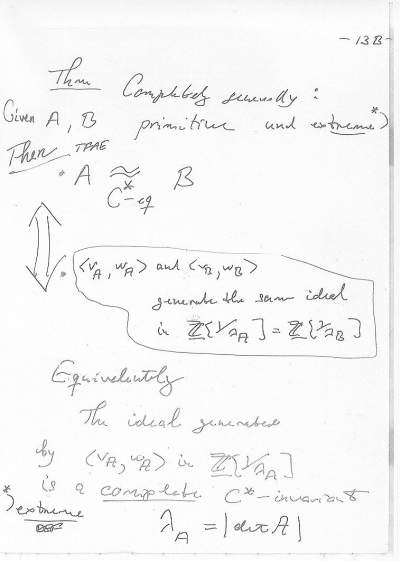 - 13B -
Thm Completely generally :
Given A, B primitive und extreme *)
Then TFAE
• A ≈ B
C*-eq
• ⟨v_A, w_A⟩ and ⟨v_B, w_B⟩
generate the same ideal
in ℤ[1/λ_A] = ℤ[1/λ_B]
Equivalently
The ideal generated
by ⟨v_A, w_A⟩ in ℤ[1/λ_A]
is a complete C*-invariant
*) extreme
λ_A = |det A|